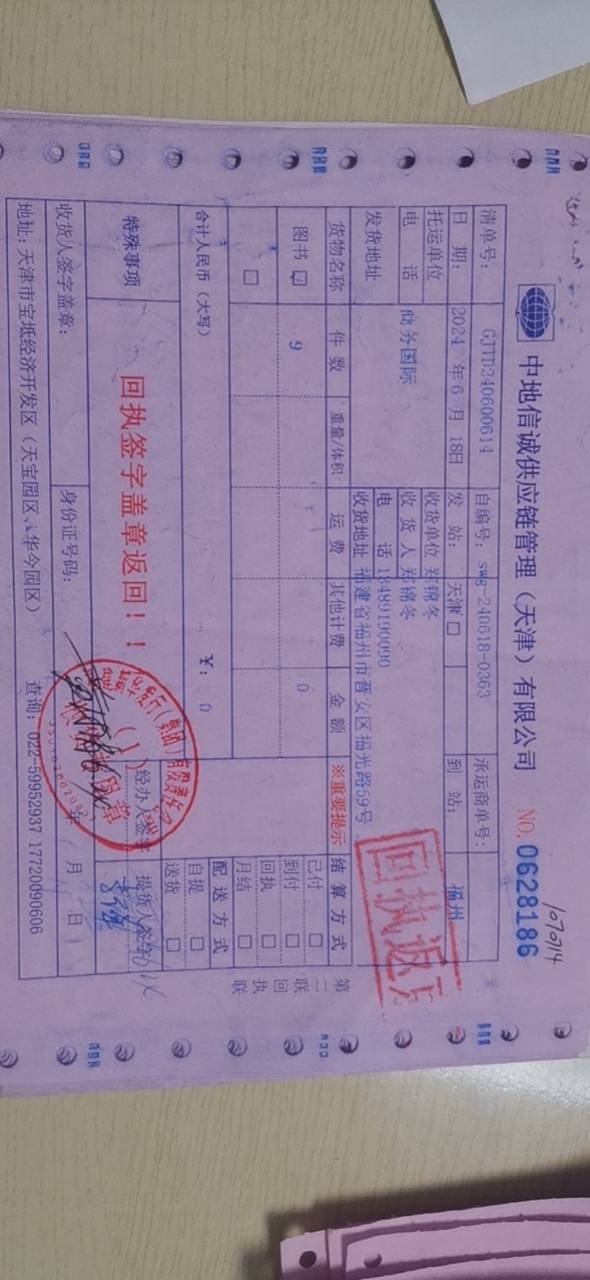 中地信诚供应链管理（天津）有限公司 NO. 0628186
1070714
清单号： GJTD240600614 自编号： swg-240618-0363 承运商单号：
日 期： 2024 年 6 月 18日 发 站： 天津 □ 到 站： 福州
托运单位 收货单位 郑锦冬
电 话 商务国际 收 货 人 郑锦冬
发货地址 电 话 18489190090
收货地址 福建省福州市晋安区福光路59号
回执返
货物名称 件 数 重量/体积 运 费 其他计费 金 额 ※重要提示 结 算 方 式
图书 ☑ 9 0 已付 □
□ 到付 □
回执 □
月结 □
合计人民币（大写） ￥： 0 配 送 方 式
自提 □
送货 □
特殊事项 回执签字盖章返回！！ 经办人签字 提货人签字
收货人签字盖章： 身份证号码： 年 月 日
地址：天津市宝坻经济开发区（天宝园区、华今园区） 查询：022-59952937 17720090606
第二联 回执联